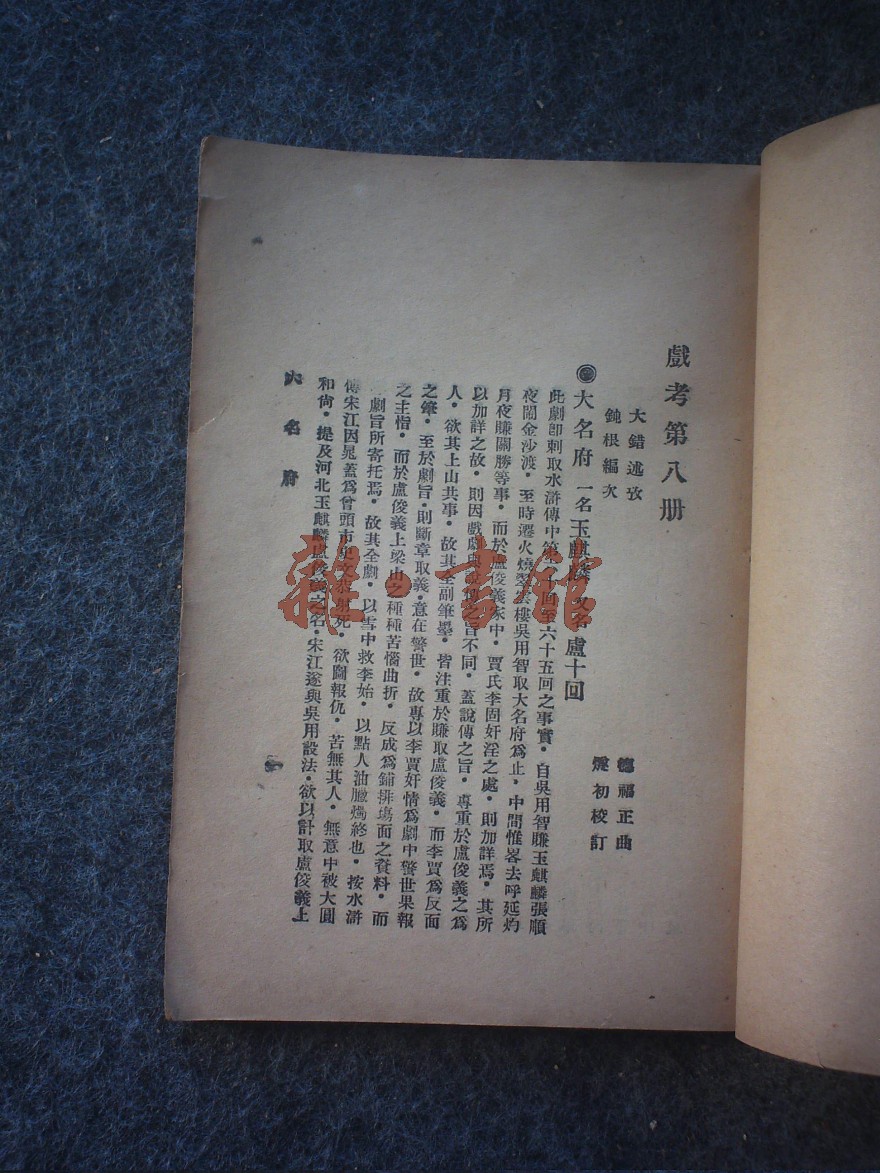 戲考第八册
大錯述攷
鈍根編次
德福正曲
燧初校訂
大名府 一名玉麒麟 又名盧十回
此劇卽刺取水滸傳中第六十回至六十五回之事實·自吳用智賺玉麒麟張順
夜鬧金沙渡·至時遷火燒翠雲樓吳用智取大名府爲止·中間惟畧去呼延灼
月夜賺關勝等事·而於盧俊義家中·賈氏李固奸淫之處·則加詳焉·其所
以加詳之故·則因戲劇與說傳之旨不同·蓋說傳之旨·專重於盧俊義之爲
人·欲其上山共事·故其全副筆墨·皆注重於賺取盧俊義·而李賈爲反面
之筆·至於劇旨·則斷章取義·意在警世·故專以李賈奸情爲劇中警世果報
之主恉·而於盧俊義上梁山之種種苦惱曲折·反成爲鋪排塲面之資料·而
劇旨所寄托焉·故其全劇·以雪中救李始·以點人油臘燭終也·按水滸
傳宋江因晁蓋爲曾頭市史文恭射死·欲圖報仇·苦無其人·無意中被大圓
和尙·提及河北玉麒麟盧俊義之名·宋江遂與吳用設法·欲以計取盧俊義上
大名府
雜·書館